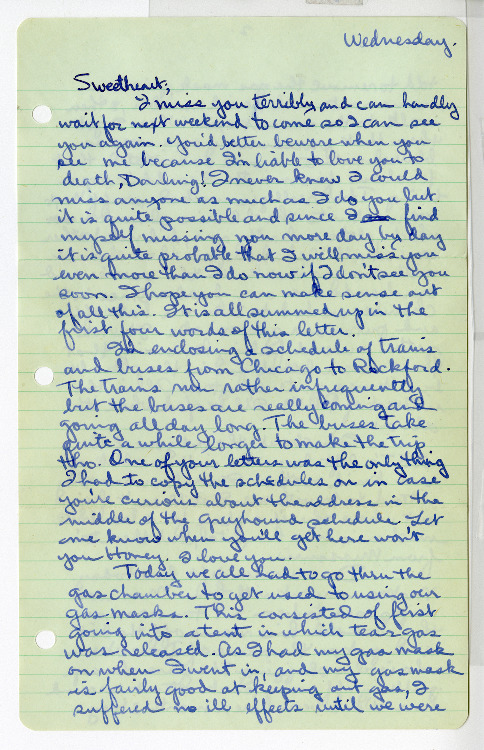 Wednesday.
Sweetheart;
I miss you terribly and can hardly
wait for next weekend to come so I can see
you again. You'd better beware when you
see me because I'm liable to love you to
death, Darling! I never knew I could
miss anyone as much as I do you but
it is quite possible and since I find
myself missing you more day by day
it is quite probable that I will miss you
even more than I do now if I don't see you
soon. I hope you can make sense out
of all this. It is all summed up in the
first four words of this letter.
I'm enclosing a schedule of trains
and buses from Chicago to Rockford.
The trains run rather infrequently
but the buses are really coming and
going all day long. The buses take
quite a while longer to make the trip
tho. One of your letters was the only thing
I had to copy the schedules on in case
you're curious about the address in the
middle of the Greyhound schedule. Let
me know when you'll get here won't
you Honey. I love you.
Today we all had to go thru the
gas chamber to get used to using our
gas masks. This consisted of first
going into a tent in which tear gas
was released. As I had my gas mask
on when I went in, and my gas mask
is fairly good at keeping out gas, I
suffered no ill effects until we were